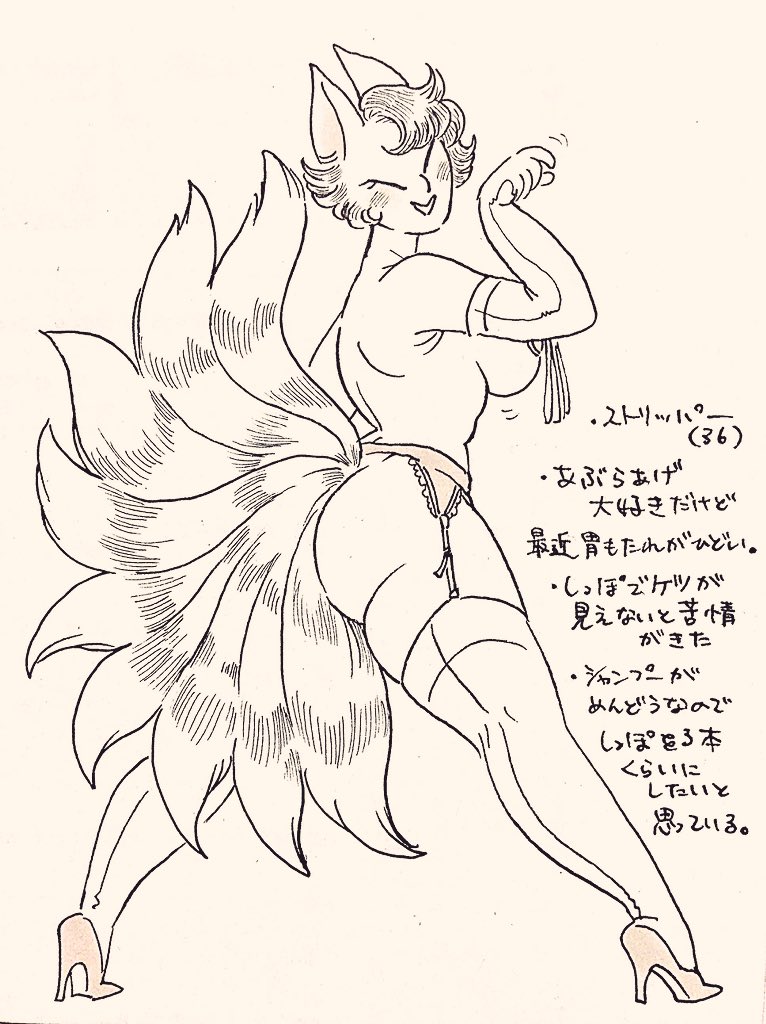 ・ストリッパー
(36)
・あぶらあげ
大好きだけど
最近胃もたれがひどい。
・しっぽでケツが
見えないと苦情
がきた
・シャンプーが
めんどうなので
しっぽを3本
くらいに
したいと
思っている。